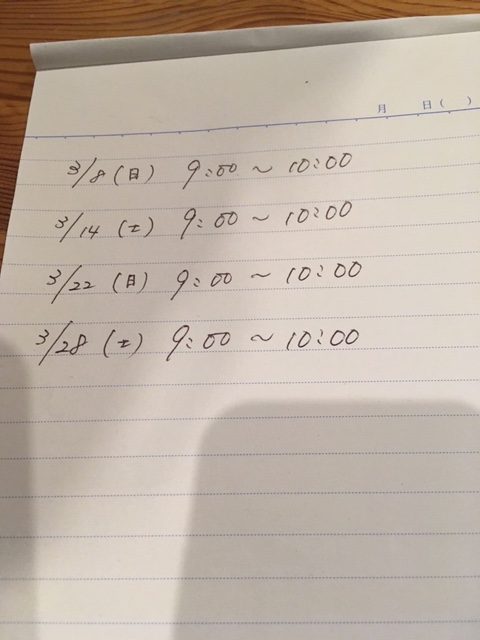 月 日( )
3/8(日) 9:00~10:00
3/14(土) 9:00~10:00
3/22(日) 9:00~10:00
3/28(土) 9:00~10:00